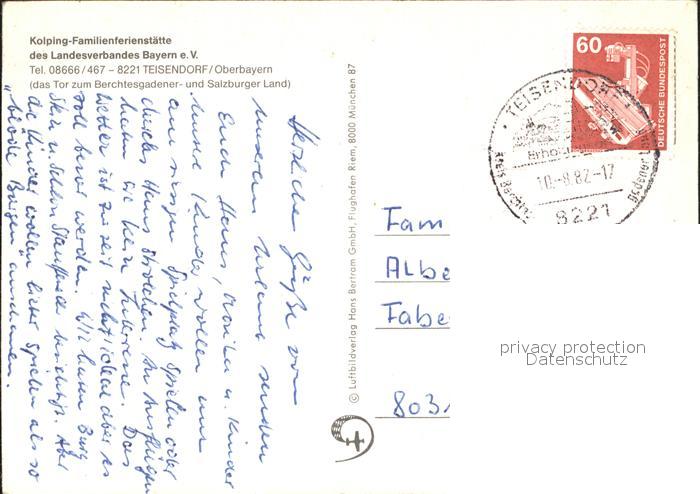 Kolping-Familienferienstätte
des Landesverbandes Bayern e.V.
Tel. 08666/467 – 8221 TEISENDORF/Oberbayern
(das Tor zum Berchtesgadener- und Salzburger Land)
Herzliche Grüße von
unserem Urlaub senden
Euch Hans, Monika u. Kinder
unsere Kinder wollen nur
am Spielplatz spielen oder
durchs Haus strolchen. An Ausflügen
haben sie kein Interesse. Das
Wetter ist zur Zeit nicht ideal aber es
soll besser werden. Wir haben Burg
u. Schloss Staufeneck besichtigt. Aber
die Kinder wollen lieber spielen als so
"blöde Burgen anschauen.
© Luftbildverlag Hans Bertram GmbH, Flughafen Riem, 8000 München 87
60
DEUTSCHE BUNDESPOST
TEISENDORF
10.-8.82-17
8221
Fam
Albe
Fabe
803
privacy protection
Datenschutz